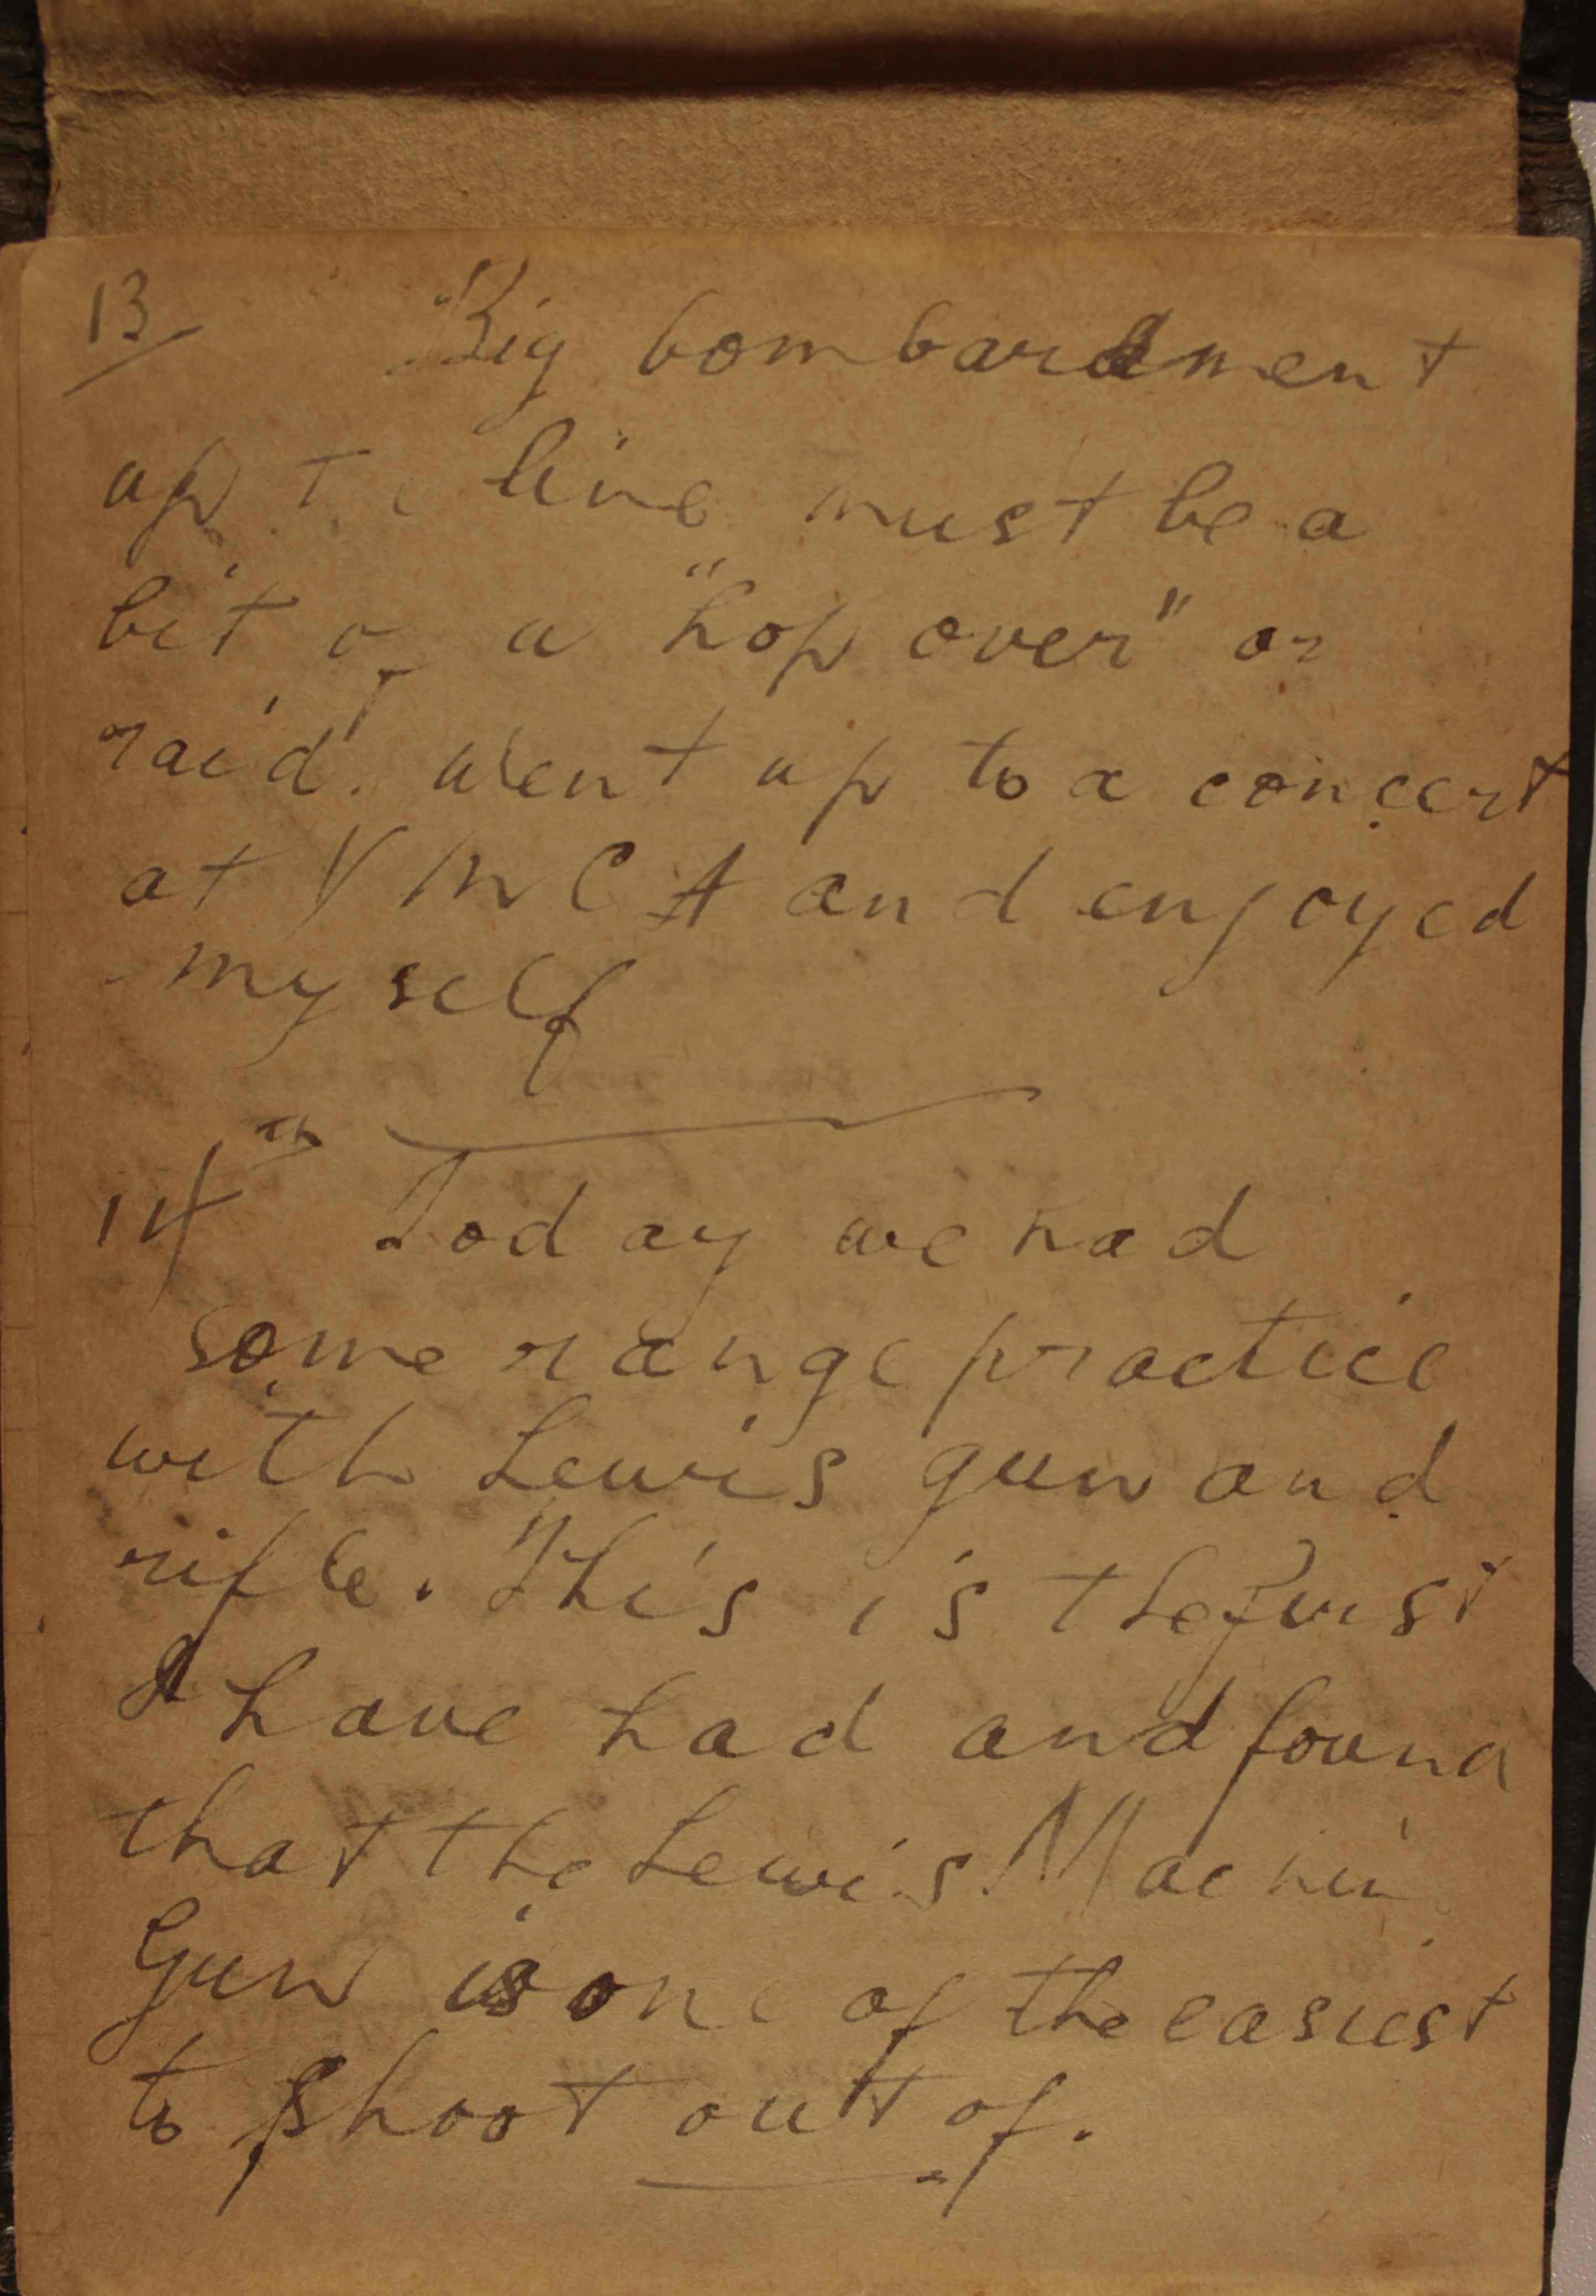 13 Big bombardment
up line must be a
bit of a "hop over" or
raid. Went up to a concert
at YMCA and enjoyed
myself
14th Today we had
some range practice
with Lewis gun and
rifle. This is the first
I have had and found
that the Lewis Machin
Gun is one of the easiest
to shoot out of.